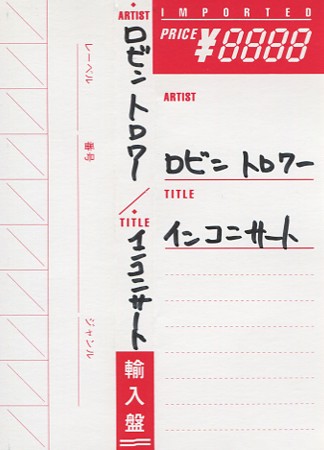 レーベル
番号
ジャンル
ARTIST
ロビン トロワー
TITLE
インコンサート
輸入盤
IMPORTED
PRICE ¥8888
ARTIST
ロビン トロワー
TITLE
インコンサート